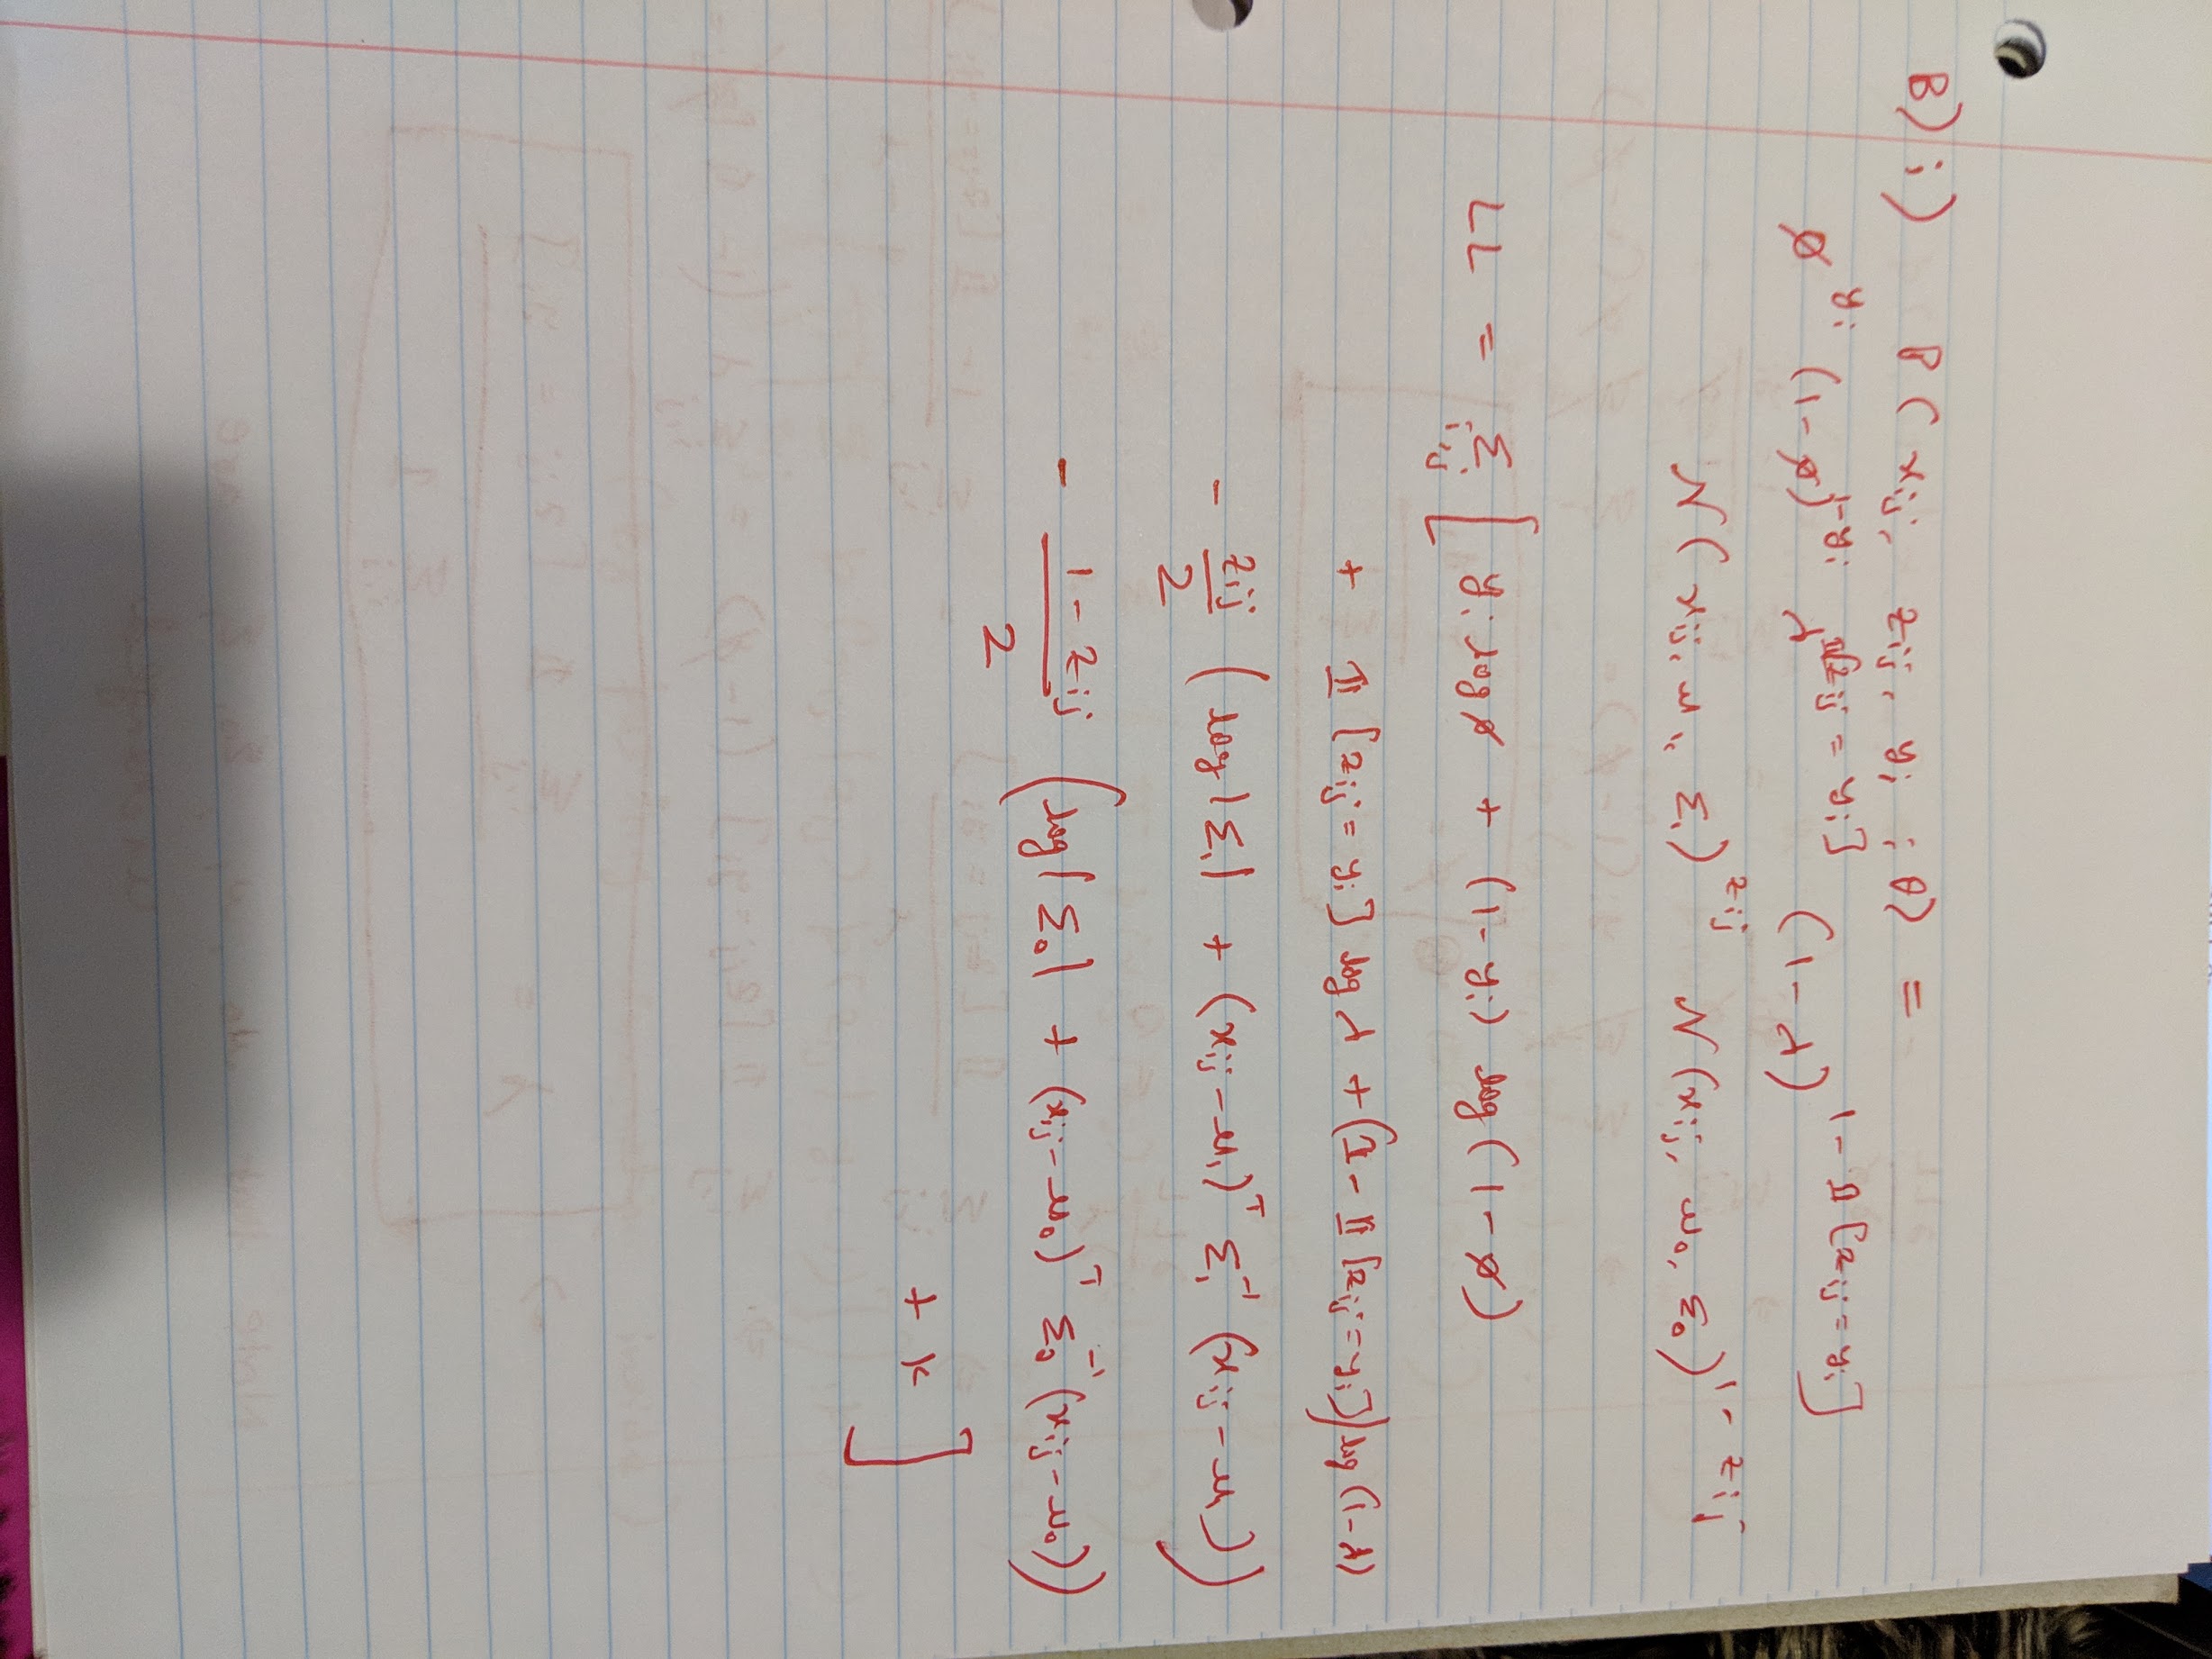 B) i) P(x_ij, z_ij, y_i ; θ) =
φ^{y_i} (1-φ)^{1-y_i} λ^{𝟙[z_ij = y_i]} (1-λ)^{1-𝟙[z_ij = y_i]}
N(x_ij, μ_1, Σ_1)^{z_ij} N(x_ij, μ_0, Σ_0)^{1-z_ij}
LL = Σ_{i,j} [ y_i log φ + (1-y_i) log(1-φ)
+ 𝟙[z_ij = y_i] log λ + (1-𝟙[z_ij = y_i]) log(1-λ)
- z_ij/2 (log|Σ_1| + (x_ij - μ_1)^T Σ_1^{-1} (x_ij - μ_1))
- (1-z_ij)/2 (log|Σ_0| + (x_ij - μ_0)^T Σ_0^{-1} (x_ij - μ_0))
+ k ]